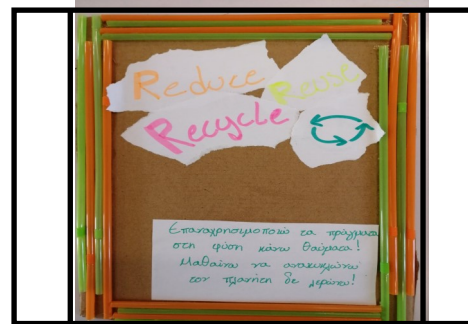 Reduce
Reuse
Recycle
Επαναχρησιμοποιώ τα πράγματα
στη φύση κάνω θαύματα!
Μαθαίνω να ανακυκλώνω
τον πλανήτη δε λερώνω!